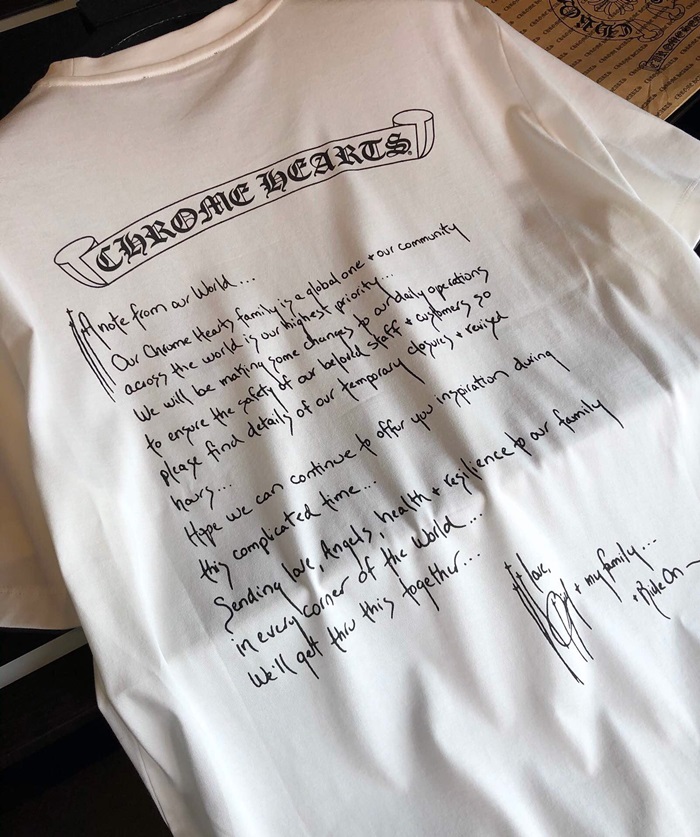 CHROME HEARTS
A note from our World...
Our Chrome Hearts family is a global one + our community
across the world is our highest priority...
We will be making some changes to our daily operations
to ensure the safety of our beloved staff + customers so
please find details of our temporary closures + revised
hours...
Hope we can continue to offer you inspiration during
this complicated time...
Sending love, Angels, health + resilience to our family
in every corner of the World...
We'll get thru this together...
love,
+ my family...
+ Ride On —